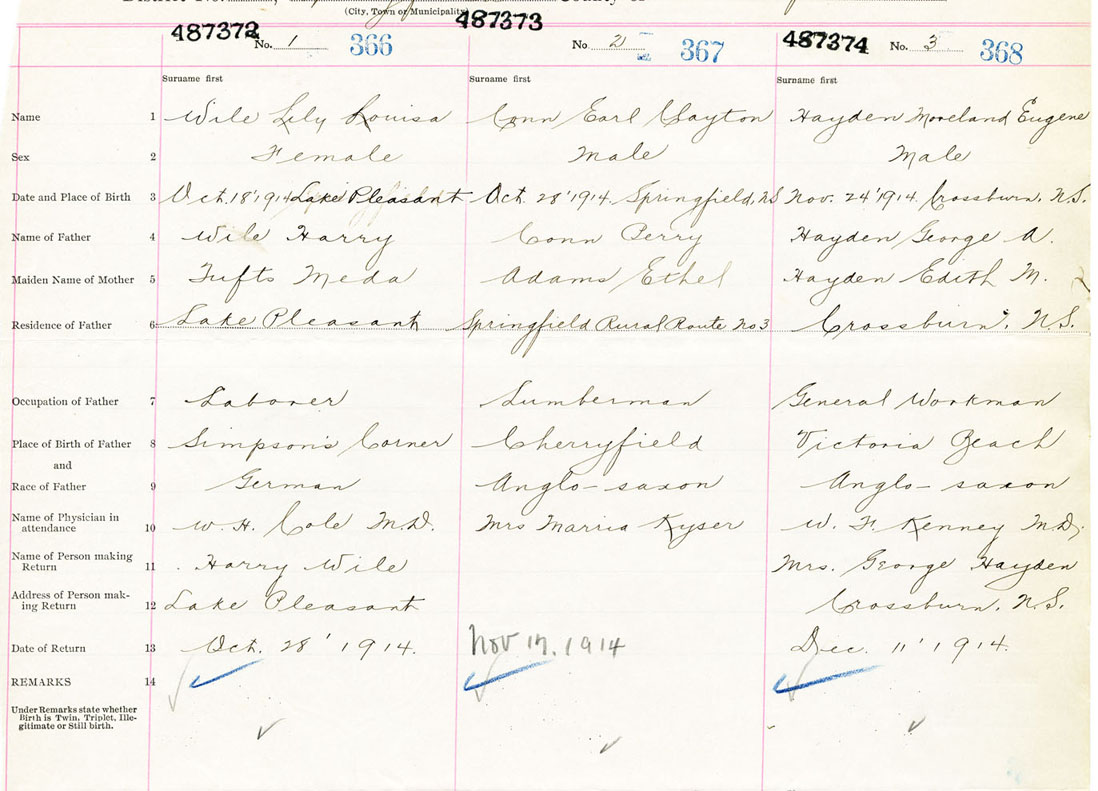 (City, Town or Municipality)
487372 No. 1 366 487373 No 2 367 487374 No. 3 368
Surname first Surname first Surname first
Name 1 Wile Lily Louisa Conn Earl Clayton Hayden Moreland Eugene
Sex 2 Female Male Male
Date and Place of Birth 3 Oct. 18' 1914 Lake Pleasant Oct. 28' 1914. Springfield, NS Nov. 24' 1914. Crossburn, N.S.
Name of Father 4 Wile Harry Conn Perry Hayden George A.
Maiden Name of Mother 5 Tufts Meda Adams Ethel Hayden Edith M.
Residence of Father 6 Lake Pleasant Springfield Rural Route No 3 Crossburn, N.S.
Occupation of Father 7 Laborer Lumberman General Workman
Place of Birth of Father 8 Simpson's Corner Cherryfield Victoria Beach
and
Race of Father 9 German Anglo-saxon Anglo-saxon
Name of Physician in
attendance 10 W. H. Cole M.D. Mrs Kyser W. F. Kenney M.D.
Name of Person making
Return 11 Harry Wile Mrs. George Hayden
Address of Person mak-
ing Return 12 Lake Pleasant Crossburn, N.S.
Date of Return 13 Oct. 28' 1914. Nov 17. 1914 Dec. 11' 1914.
REMARKS 14
Under Remarks state whether
Birth is Twin, Triplet, Ille-
gitimate or Still birth.